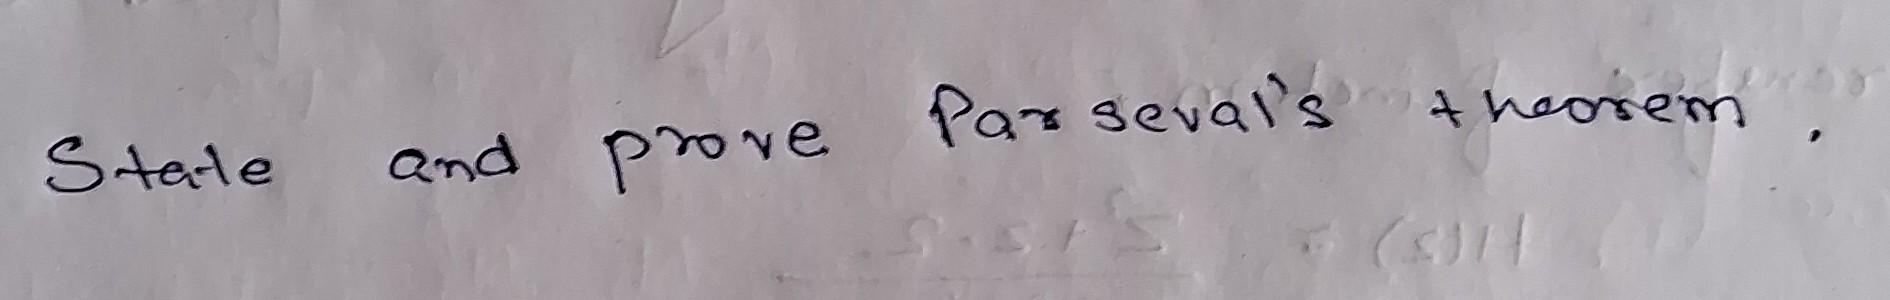 State and prove Parseval's theorem.